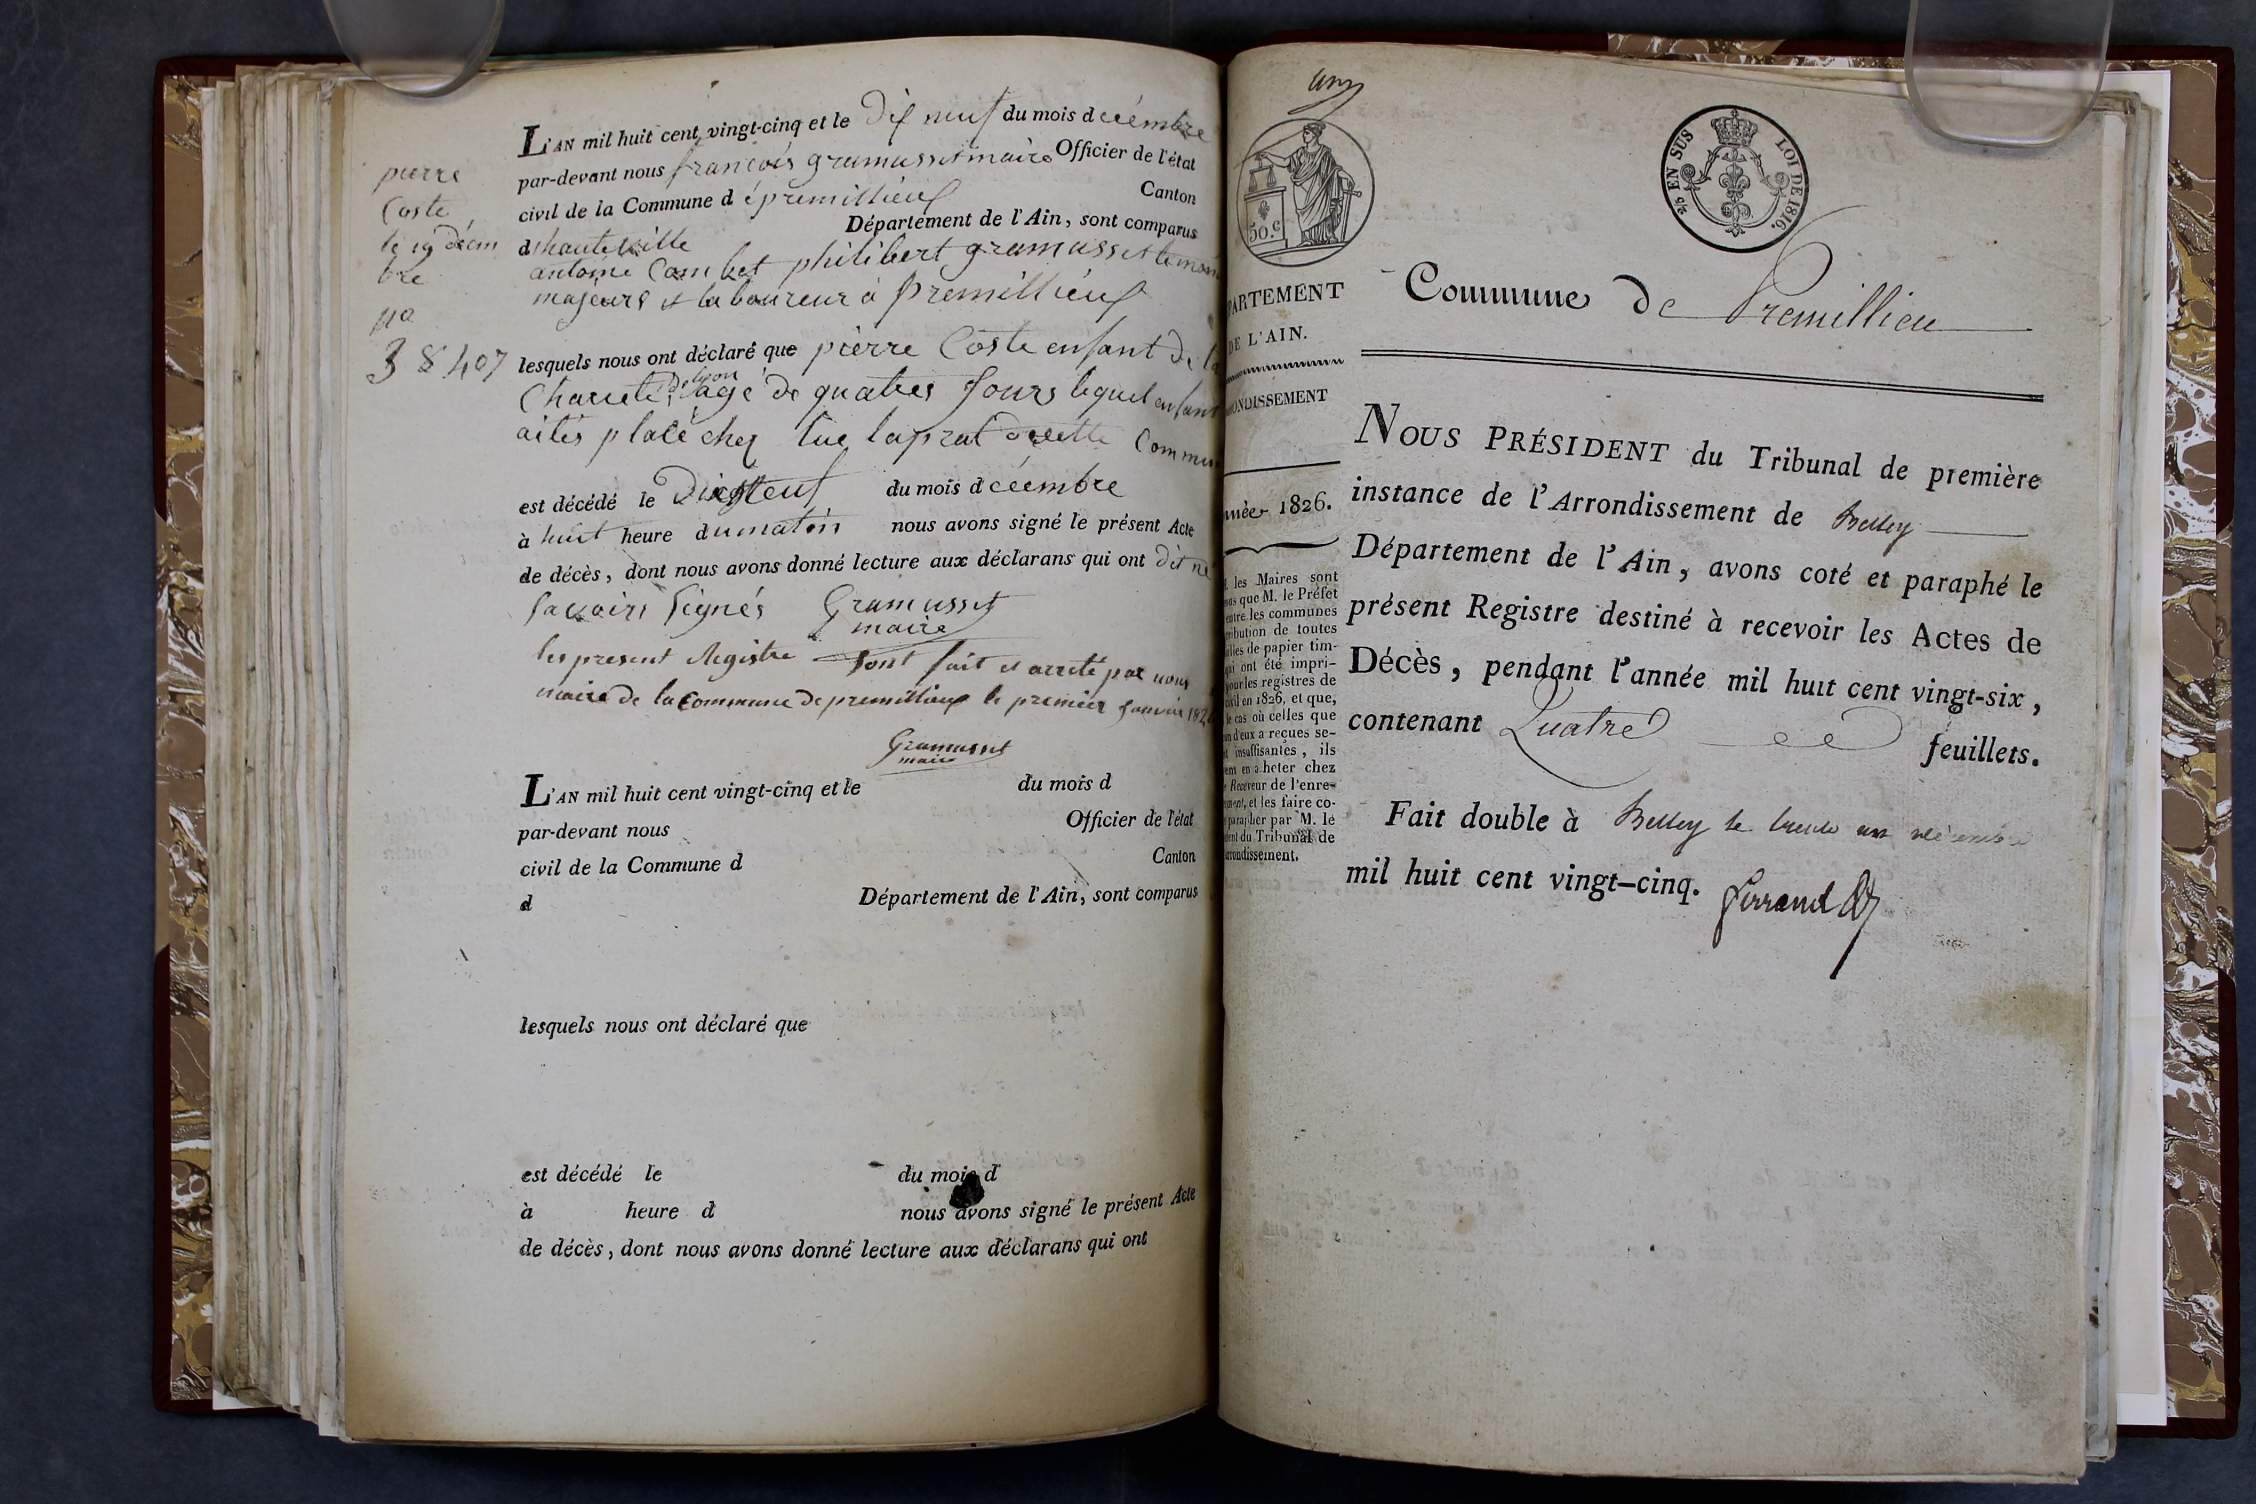 pierre
Coste
le 19 décem
bre
no
38407
L'AN mil huit cent vingt-cinq et le Dix neuf du mois d cécémbre
par-devant nous francois gramusset maire Officier de l'état
civil de la Commune d épremillieux Canton
d hauteville Département de l'Ain, sont comparus
antoine Combet philibert gramusset
majeurs et laboureur à premillieux
lesquels nous ont déclaré que pierre Coste enfant de la
de lyon
Charité agé de quatres Jours lequel enfant
aités placé chez luc laprat Commu
est décédé le Dixneuf du mois d cécémbre
à huit heure dumatin nous avons signé le présent Acte
de décès, dont nous avons donné lecture aux déclarans qui ont dit ne
savoire signés Gramusset
maire
les present Registre sont fait et arreté par nous
maire de la Commune de premillieux le premier Janvier 182
Gramusset
maire
L'AN mil huit cent vingt-cinq et le du mois d
par-devant nous Officier de l'état
civil de la Commune d Canton
d Département de l'Ain, sont comparus
lesquels nous ont déclaré que
est décédé le du mois d
à heure d nous avons signé le présent Acte
de décès, dont nous avons donné lecture aux déclarans qui ont
50.c
EN SUS LOI DE 1816.
PARTEMENT
DE L'AIN.
ONDISSEMENT
nnée 1826.
les Maires sont
que M. le Préfet
entre les communes
tribution de toutes
lles de papier tim-
qui ont été impri-
pour les registres de
civil en 1826, et que,
le cas où celles que
un d'eux a reçues se-
t insuffisantes, ils
en acheter chez
Receveur de l'enre-
ment, et les faire co-
parapher par M. le
dent du Tribunal de
rrondissement.
Commune de Premillieu
NOUS PRÉSIDENT du Tribunal de première
instance de l'Arrondissement de Belley
Département de l'Ain, avons coté et paraphé le
présent Registre destiné à recevoir les Actes de
Décès, pendant l'année mil huit cent vingt-six,
contenant Quatre feuillets.
Fait double à Belley le trente un décembre
mil huit cent vingt-cinq. Ferrand